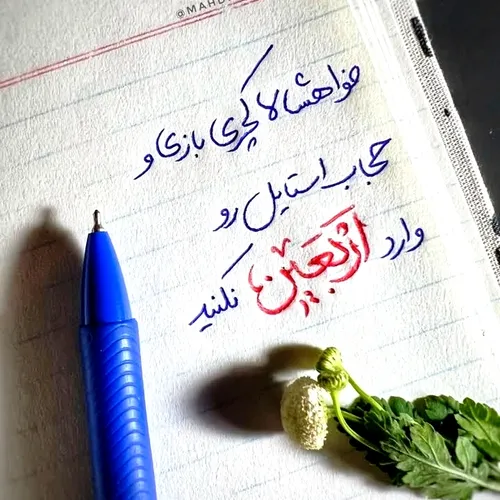 @MAHD
خواهشا لاکچری بازی و
حجاب استایل رو
وارد اَربَعین نکنید